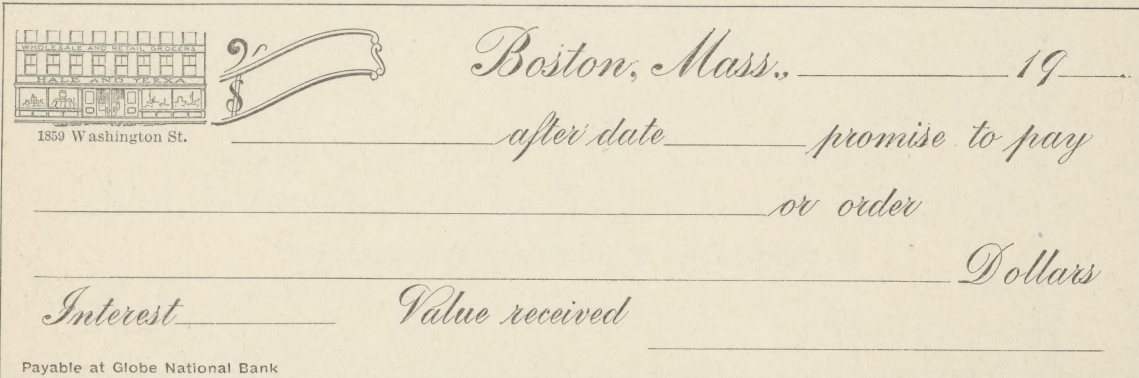 WHOLESALE AND RETAIL GROCERS
HALE AND YERXA
1859 Washington St.
$
Boston, Mass., 19
after date promise to pay
or order
Dollars
Interest Value received
Payable at Globe National Bank